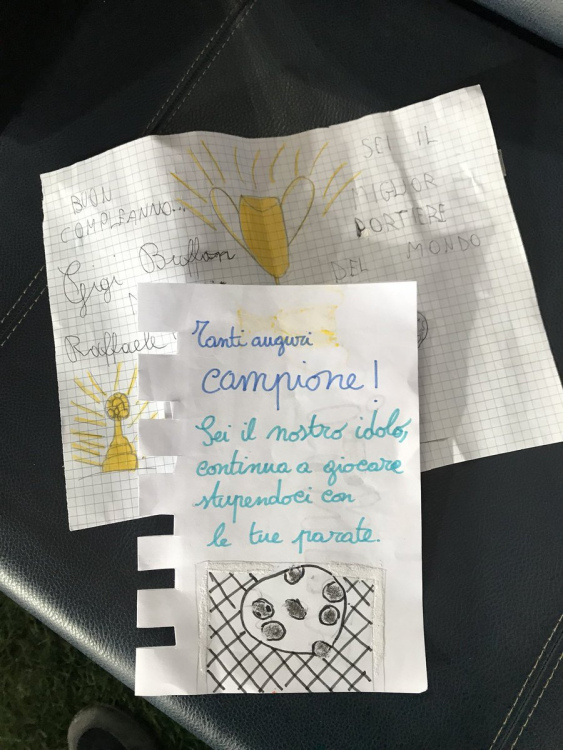 BUON
COMPLEANNO...
Gigi Buffon
Raffaele
SEI IL
MIGLIOR
PORTIERE
DEL MONDO
Tanti auguri
campione!
Sei il nostro idolo,
continua a giocare
stupendoci con
le tue parate.